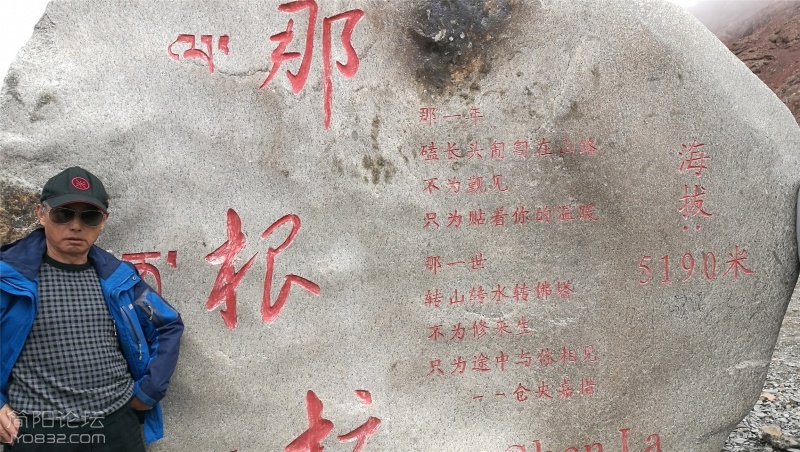 那
根
拉
那一年
磕长头匍匐在山路
不为觐见
只为贴着你的温暖
那一世
转山转水转佛塔
不为修来生
只为途中与你相见
--仓央嘉措
海拔:
5190米
Chen La
简阳论坛
JY0832.COM